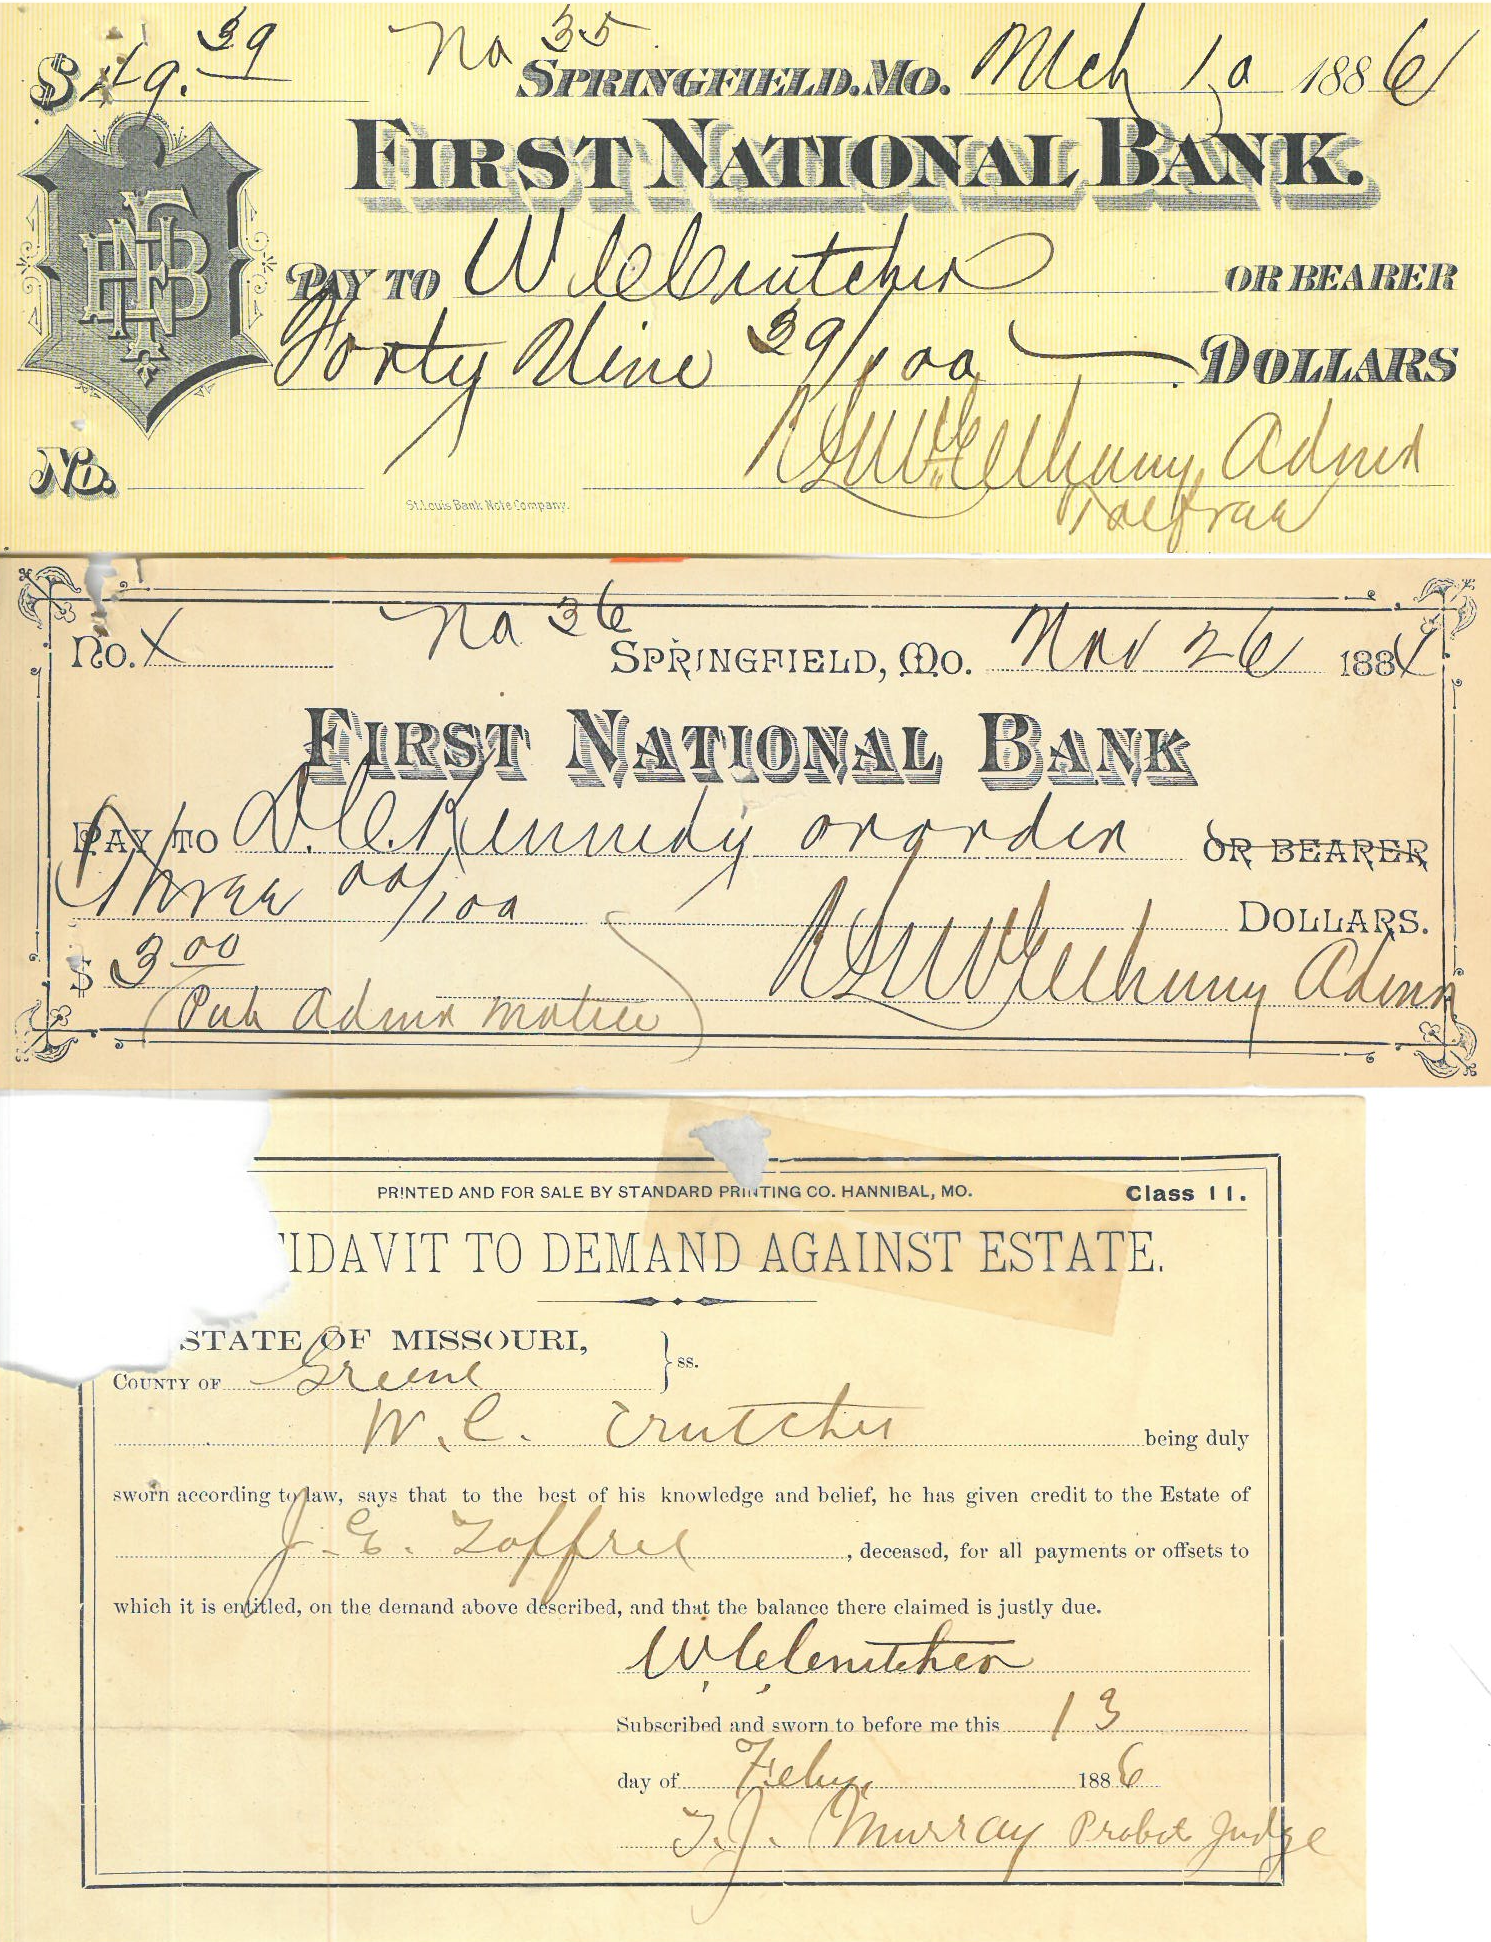 $49.39 No 35 SPRINGFIELD, MO. Mch 10 1886
FIRST NATIONAL BANK.
FNB
PAY TO W C Crutcher OR BEARER
Forty Nine 39/100 DOLLARS
Admr
No.
Toefrae
St. Louis Bank Note Company.
No. X No 36 SPRINGFIELD, MO. Nov 26 1884
FIRST NATIONAL BANK
PAY TO D. C. Kennedy or order OR BEARER
Three 00/100 DOLLARS.
$ 3 00 Admr
Pub Admr Notice
PRINTED AND FOR SALE BY STANDARD PRINTING CO. HANNIBAL, MO. Class 11.
IDAVIT TO DEMAND AGAINST ESTATE.
STATE OF MISSOURI,
COUNTY OF Greene } ss.
W. C. Crutcher being duly
sworn according to law, says that to the best of his knowledge and belief, he has given credit to the Estate of
J. E. Toffree, deceased, for all payments or offsets to
which it is entitled, on the demand above described, and that the balance there claimed is justly due.
W. C. Crutcher
Subscribed and sworn to before me this 13
day of Feby. 1886
T. J. Murray Probate Judge